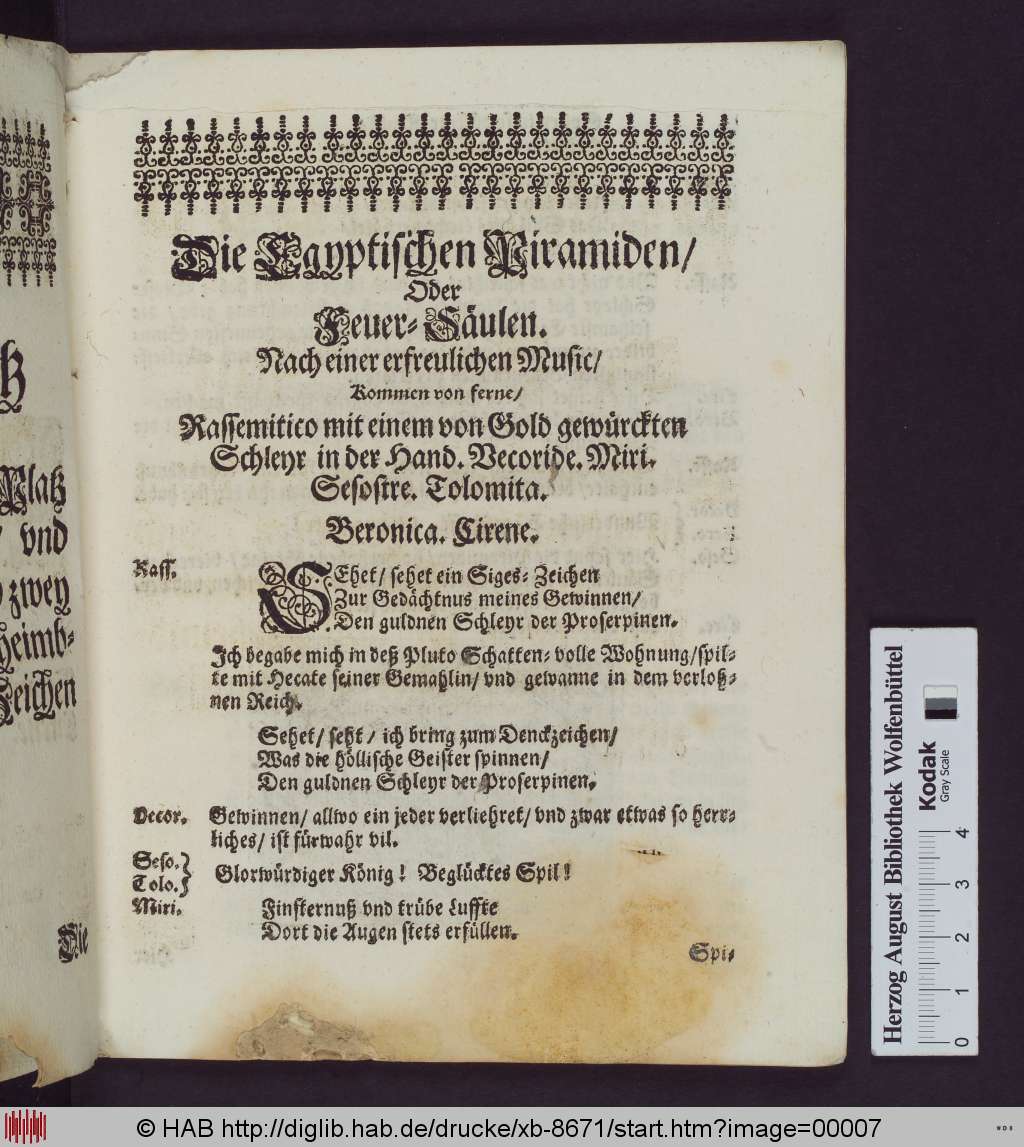 ß
Platz
/ vnd
zwey
heimb-
Zeichen
Die
Die Egyptischen Piramiden/
Oder
Feuer-Säulen.
Nach einer erfreulichen Music/
Kommen von ferne/
Rassemitico mit einem von Gold gewürckten
Schleyr in der Hand. Vecoride. Miri.
Sesostre. Tolomita.
Beronica. Cirene.
Rass. SEhet/ sehet ein Siges-Zeichen
Zur Gedächtnus meines Gewinnen/
Den guldnen Schleyr der Proserpinen.
Ich begabe mich in deß Pluto Schatten-volle Wohnung/spil-
te mit Hecate seiner Gemahlin/ vnd gewanne in dem verloß-
nen Reich.
Sehet/ seht/ ich bring zum Denckzeichen/
Was die höllische Geister spinnen/
Den guldnen Schleyr der Proserpinen.
Vecor. Gewinnen/ allwo ein jeder verliehret/ vnd zwar etwas so herr-
liches/ ist fürwahr vil.
Seso.
Tolo.} Glorwürdiger König! Beglücktes Spil!
Miri. Finsternuß vnd trübe Luffte
Dort die Augen stets erfüllen.
Spi-
Herzog August Bibliothek Wolfenbüttel
Kodak
Gray Scale
0 1 2 3 4
© HAB http://diglib.hab.de/drucke/xb-8671/start.htm?image=00007